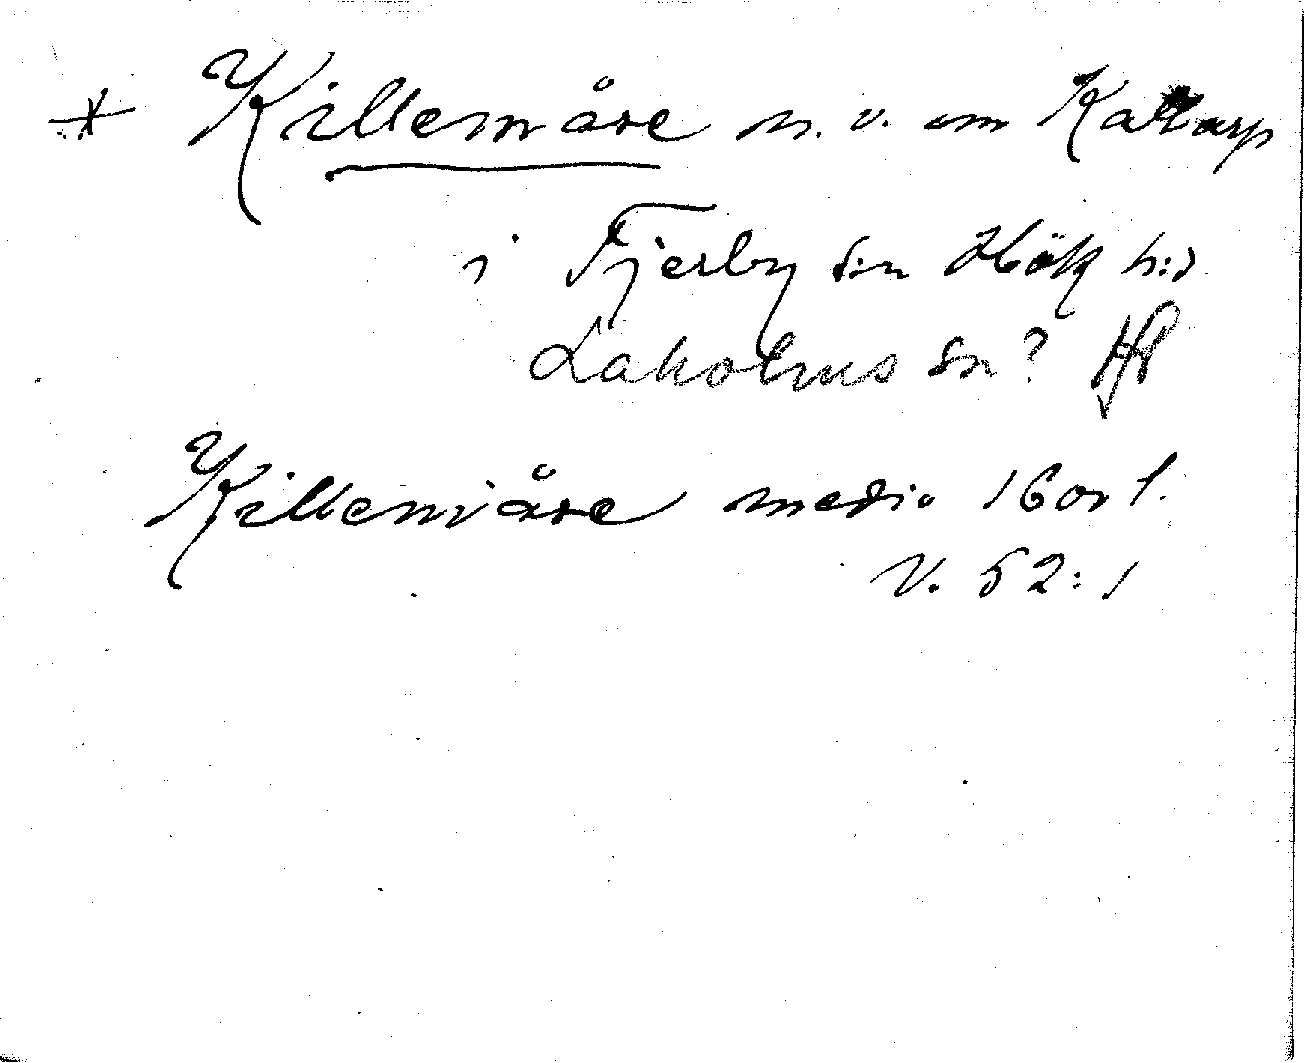 * Killemåse n. v. om Kattarp
i Tjerby sn Höks h:d
Laholms sn?
Killemåse medio 1600 t.
V. 52:1